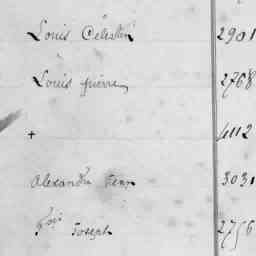 Louis Célestin 2901
Louis pierre 2768
+ 4112
Alexandre 3031
fois Joseph 2756